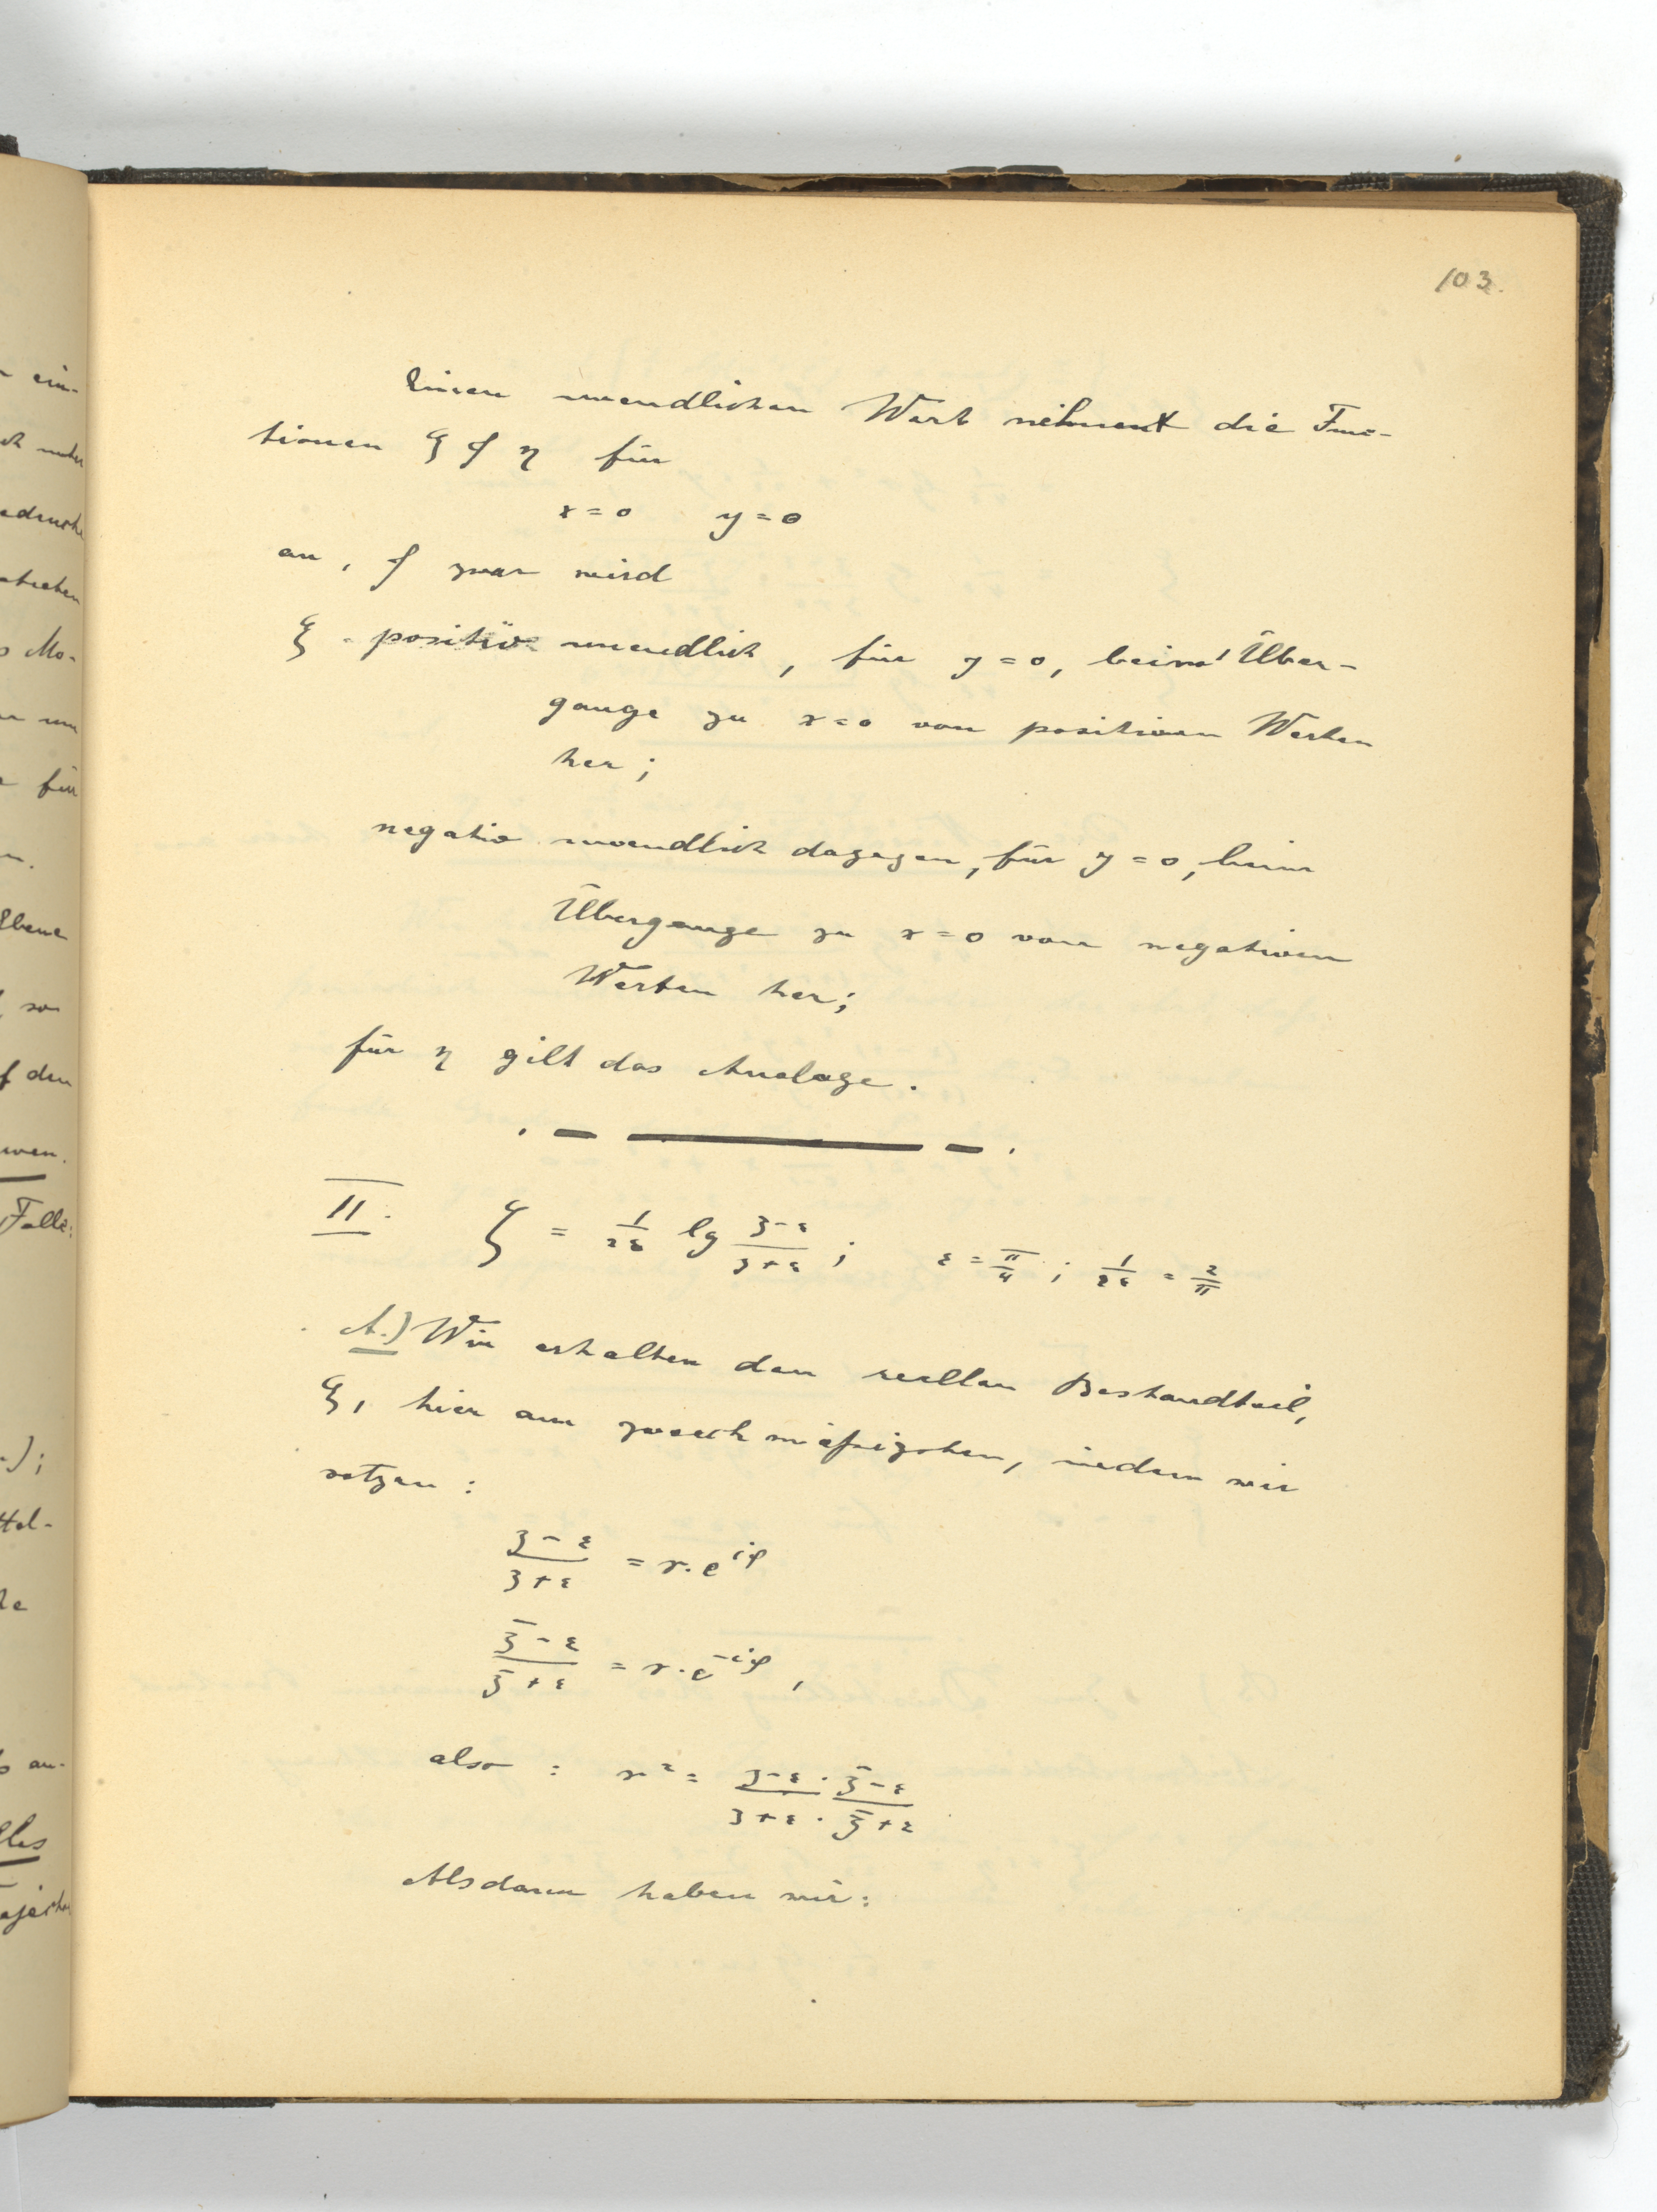 103.
Einen unendlichen Wert nehmen die Func-
tionen ξ & η für
x = 0   y = 0
an, & zwar wird
ξ = positiv unendlich, für y = 0, beim Über-
gange zu x = 0 von positiven Werten
her;
negativ unendlich dagegen, für y = 0, beim
Übergange zu x = 0 von negativen
Werten her;
für η gilt das Analoge.
II. ζ = 1/2ε lg (z-ε)/(z+ε); ε = π/4; 1/2ε = 2/π
A.) Wir erhalten den reellen Bestandteil,
ξ, hier am zweckmäßigsten, indem wir
setzen:
(z-ε)/(z+ε) = r. e^{iφ}
(z̄-ε)/(z̄+ε) = r. e^{-iφ},
also: r² = (z-ε · z̄-ε)/(z+ε · z̄+ε)
Alsdann haben wir: